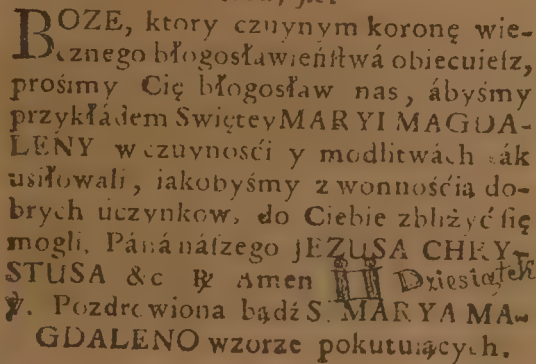 BOZE, ktory czuynym koronę wie-
cznego błogosławieńſtwá obiecuieſz,
prośimy Cię błogosław nas, ábyśmy
przykłádem Swiętey MARYI MAGDA-
LENY w czuynosći y modlitwách ták
usiłowali, iakobyśmy z wonnośćią do-
brych uczynkow, do Ciebie zbliżyć ſię
mogli. Páná náſzego JEZUSA CHRY-
STUSA &c ℟ Amen II Dziesiątek
℣. Pozdrowiona bądź S. MARYA MA-
GDALENO wzorze pokutuiących.